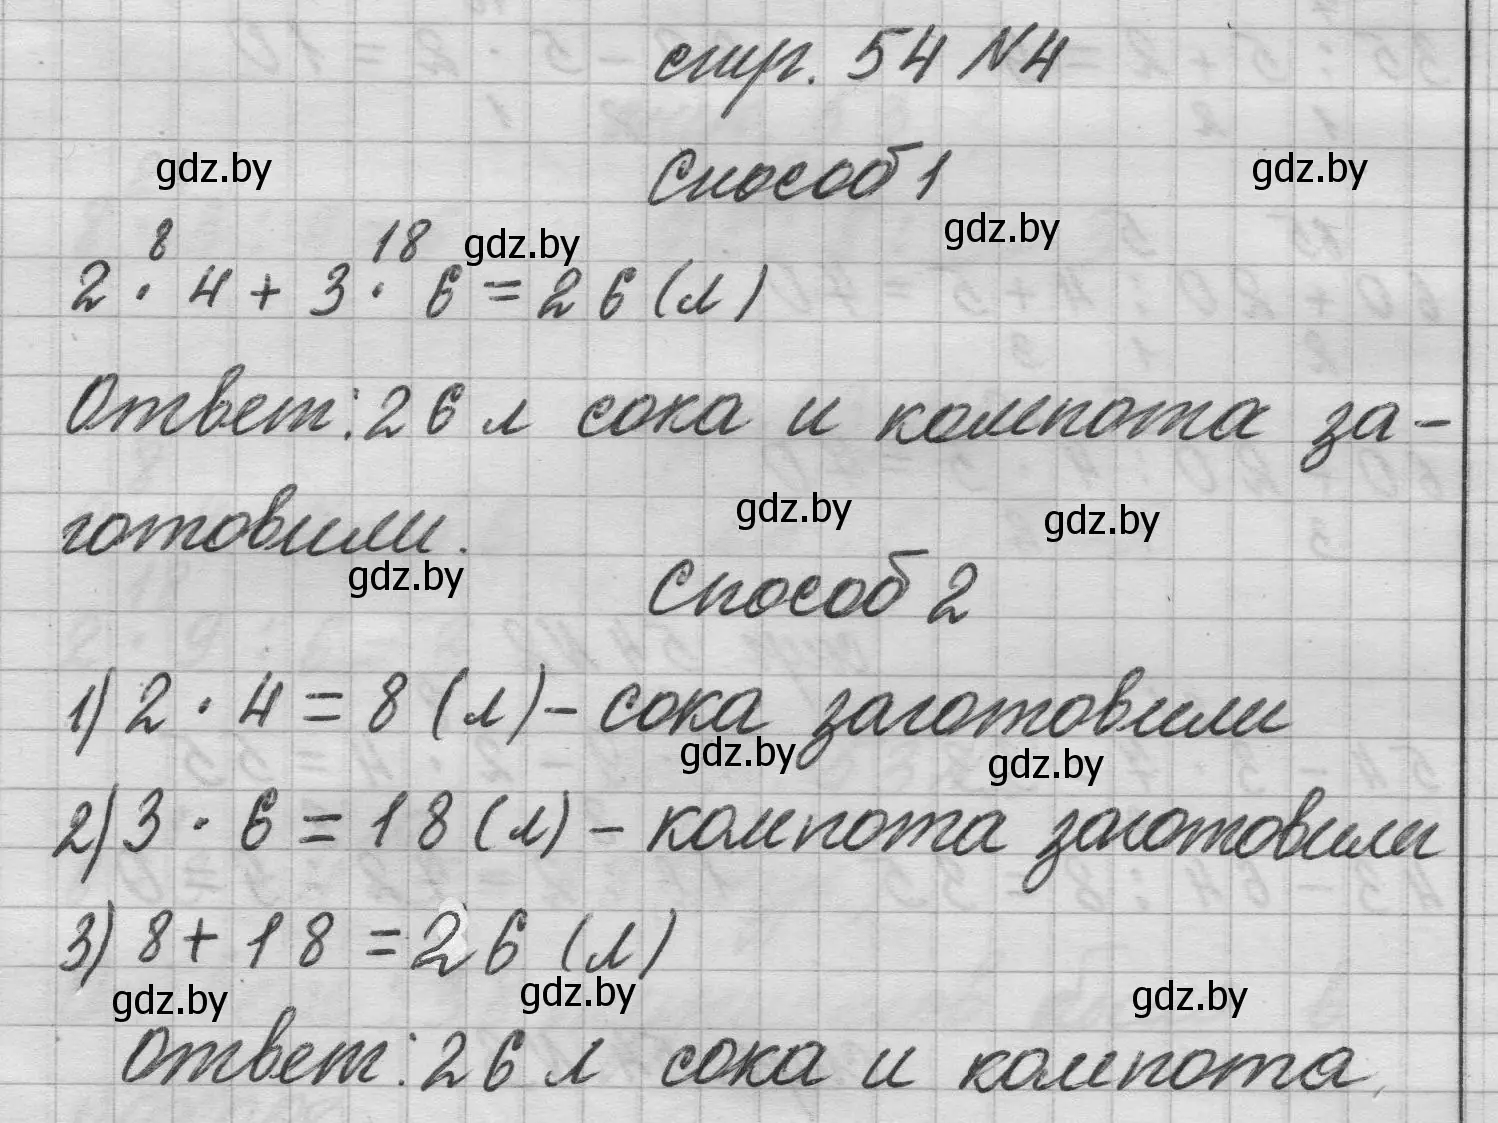 стр. 54 №4
gdz.by
Способ 1
gdz.by
gdz.by
8 18
gdz.by
2 · 4 + 3 · 6 = 26 (л)
Ответ: 26 л сока и компота за-
gdz.by
gdz.by
готовили.
gdz.by
Способ 2
1) 2 · 4 = 8 (л) – сока заготовили
gdz.by
gdz.by
2) 3 · 6 = 18 (л) – компота заготовили
3) 8 + 18 = 26 (л)
gdz.by
gdz.by
gdz.by
Ответ: 26 л сока и компота.